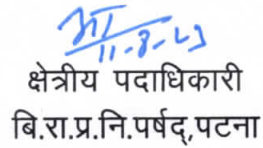 11-8-23
क्षेत्रीय पदाधिकारी
बि.रा.प्र.नि.पर्षद्,पटना